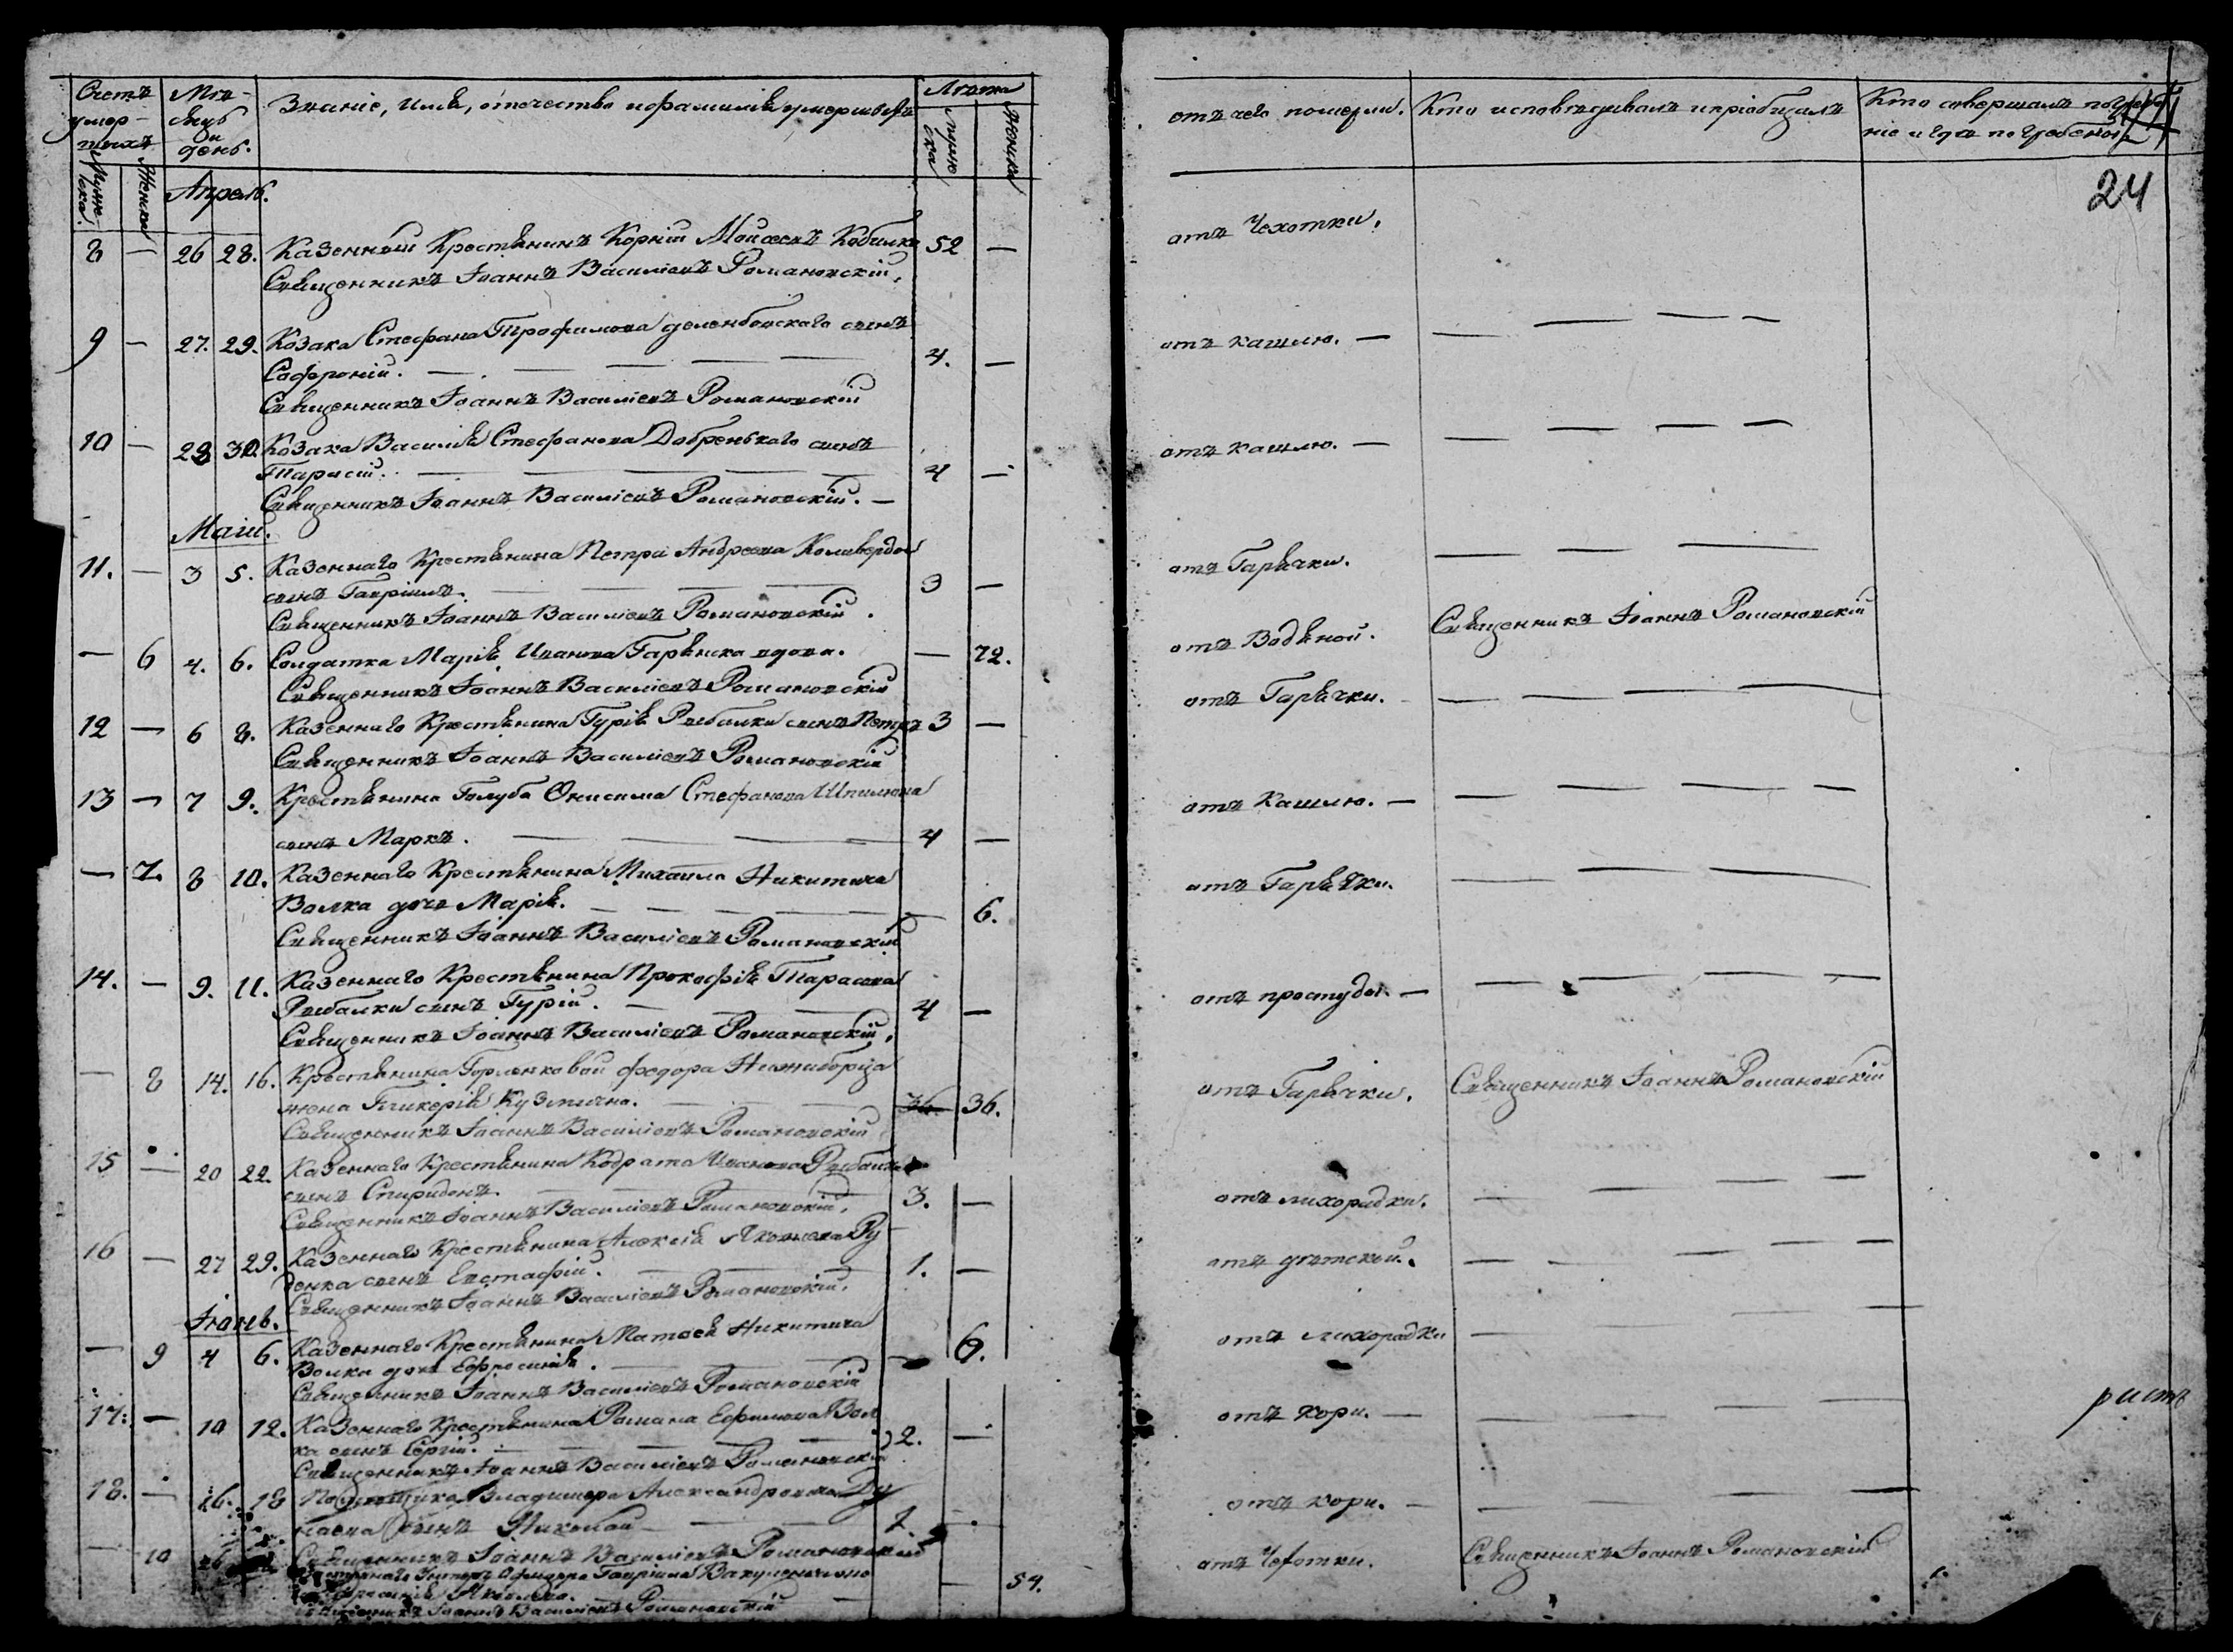 Счетъ умер-шихъ Мѣ-сяцъ и день. Званіе, имя, отечество и фамилія умершаго Лѣта
Мужеска. Женска мужеска женска
Апрель.
8 — 26 28. Казенный Крестьянинъ Корній Мойсеевъ Кобилка 52 —
Священникъ Іоаннъ Василіевъ Романовскій.
9 — 27. 29. Козака Стефана Трофимова сынъ
Софроній. — — — — 4. —
Священникъ Іоаннъ Василіевъ Романовскій
10 — 28 30. Козака Василія Стефанова Добренькаго сынъ
Тарасій. — — — — 4 —
Священникъ Іоаннъ Василіевъ Романовскій. —
Маій.
11. — 3 5. Казеннаго Крестьянина Петра Андреева
сынъ Гавріилъ. — — — 3 —
Священникъ Іоаннъ Василіевъ Романовскій.
— 6 4. 6. Солдатка Марія Иванова вдова. — 72.
Священникъ Іоаннъ Василіевъ Романовскій
12 — 6 8. Казеннаго Крестьянина Гурія Рыбалки сынъ Петръ 3 —
Священникъ Іоаннъ Василіевъ Романовскій
13 — 7 9. Крестьянина Голуба Онисима Стефанова
сынъ Маркъ. — — — — 4 —
— 7. 8 10. Казеннаго Крестьянина Михаила Никитина
Волка дочь Марія. — — — — — 6.
Священникъ Іоаннъ Василіевъ Романовскій
14. — 9. 11. Казеннаго Крестьянина Прокофія Тарасова
Рыбалки сынъ Гурій. — — — 4 —
Священникъ Іоаннъ Василіевъ Романовскій.
— 8 14. 16. Крестьянина Горленковой Федора
жена Гликерія Кузмична. — — — 36 36.
Священникъ Іоаннъ Василіевъ Романовскій
15 — 20 22. Казеннаго Крестьянина Кодрата Иванова Рыбалки
сынъ Спиридонъ. — — — 3. —
Священникъ Іоаннъ Василіевъ Романовскій.
16 — 27 29. Казеннаго Крестьянина Алексія Яковлева Ру
денка сынъ Евстафій. — — — 1. —
Священникъ Іоаннъ Василіевъ Романовскій.
Іюнь.
— 9 4 6. Казеннаго Крестьянина Матвея Никитина
Волка дочь Ефросинія. — — — — 6.
Священникъ Іоаннъ Василіевъ Романовскій
17. — 10 12. Казеннаго Крестьянина Романа Ефимова Вол
ка сынъ Сергій. — — — 2. —
Священникъ Іоаннъ Василіевъ Романовскій
18. — 16. 18 Владимера Александрова Ду
наева сынъ Николай — — —
— 10 Священникъ Іоаннъ Василіевъ Романовскій
Гавріила — 54.
Священникъ Іоаннъ Василіевъ Романовскій
отъ чего померли. Кто исповѣдывалъ и пріобщалъ Кто совершалъ погребеніе и где погребены
24
отъ Чехотки.
отъ кашлю. — — — — —
отъ кашлю. — — — — —
отъ Гарячки. — — —
отъ Водяной. Священникъ Іоаннъ Романовскій
отъ Гарячки. — — — —
отъ Кашлю. — — — — —
отъ Гарячки. — — —
отъ простуды. — — — — —
отъ Гарячки. Священникъ Іоаннъ Романовскій
отъ лихорадки. — — — —
отъ дѣтской. — — — —
отъ лихорадки — — —
отъ кори. — — — — —
ристъ
отъ кори. — — — — —
отъ Чехотки. Священникъ Іоаннъ Романовскій